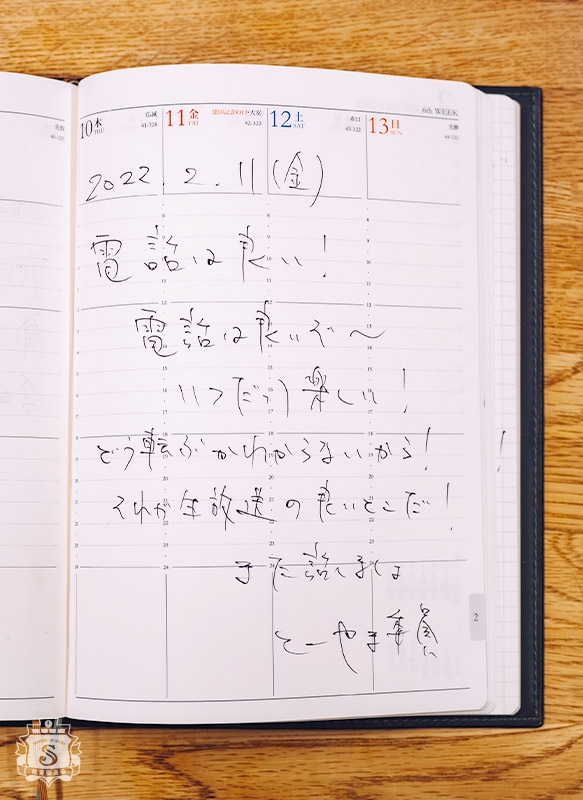 6th WEEK
10 木 THU 仏滅 41-324
11 金 FRI 建国記念の日・大安 42-323
12 土 SAT 赤口 43-322
13 日 SUN 先勝 44-321
2022.2.11(金)
電話は良い!
電話は良いぞ〜
いつだって楽しい!
どう転ぶかわからないから!
それが生放送の良いとこだ!
また話しましょ
とーやま委員
2